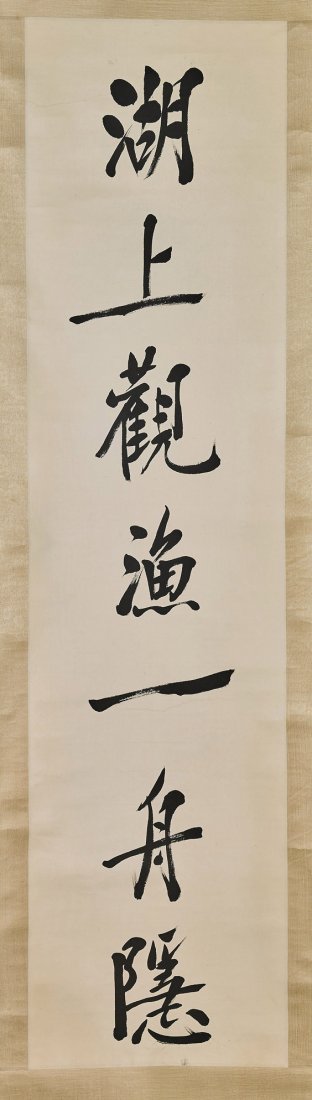 湖上觀漁一舟隱